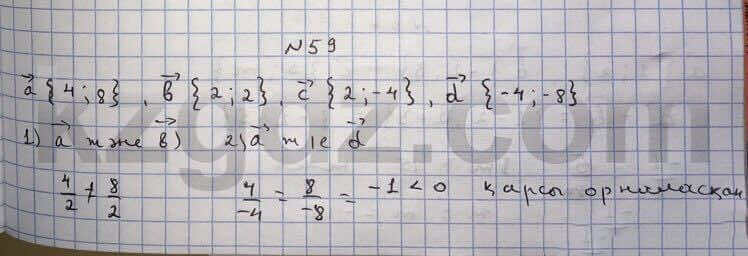 №59
a⃗ {4;8}, b⃗ {2;2}, c⃗ {2;-4}, d⃗ {-4;-8}
1) a⃗ және b⃗) 2) a⃗ ж/е d⃗
4/2 ≠ 8/2 4/-4 = 8/-8 = -1 < 0 қарсы орналасқан
kzgdz.com